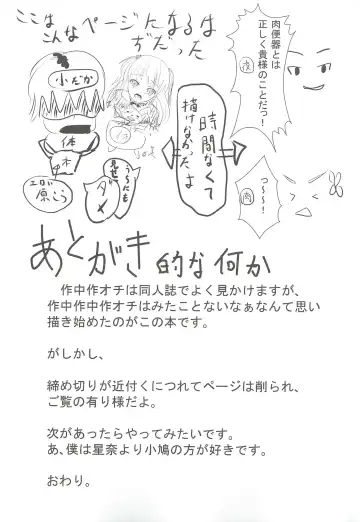 ここは
こんなページになるは
ずだった
肉便器とは
正しく貴様のことだっ!
(肉)
小だか
体
時間なくて
描けなかったよ
ダメ
っ~~!
(肉)
あとがき的な何か
作中作オチは同人誌でよく見かけますが、
作中作中作オチはみたことないなぁなんて思い
描き始めたのがこの本です。
がしかし、
締め切りが近付くにつれてページは削られ、
ご覧の有り様だよ。
次があったらやってみたいです。
あ、僕は星奈より小鳩の方が好きです。
おわり。